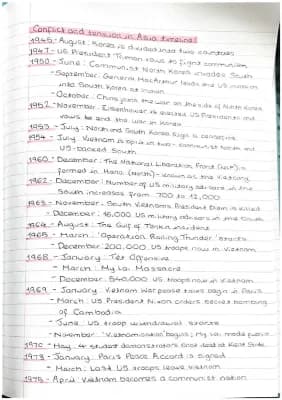 Conflict and tension in Asia timeline:
1945- August: Korea is divided into two countries
1947- US President Truman vows to fight communism
1950- June: Communist North Korea invades South
- September: General MacArthur leads and US invasion
into South Korea at Inchon
- October: China joins the war on the side of North Korea
1952- November: Eisenhower is elected US President and
vows to end the war in Korea
1953- July: North and South Korea sign a ceasefire
1954- July: Vietnam is split in two - communist North and
US-backed South
1960- December: The National Liberation Front (NLF) is
formed in Hanoi (North) - known as the Vietcong
1962- December: Number of US military advisors in the
South increases from 700 to 12,000
1963- November: South Vietnam's President Diem is killed
- December: 16,000 US military advisors in the South
1964- August: The Gulf of Tonkin incident
1965- March: 'Operation Rolling Thunder' starts
- December: 200,000 US troops now in Vietnam
1968- January: Tet Offensive
- March: My Lai Massacre
- December: 540,000 US troops now in Vietnam
1969- January: Vietnam War peace talks begin in Paris
- March: US President Nixon orders secret bombing
of Cambodia
- June: US troop withdrawal starts
- November: 'Vietnamisation' begins; My Lai made public
1970- May: 4 student demonstrators shot dead at Kent State
1973- January: Paris Peace Accord is signed
- March: Last US troops leave Vietnam
1975- April: Vietnam becomes a communist nation